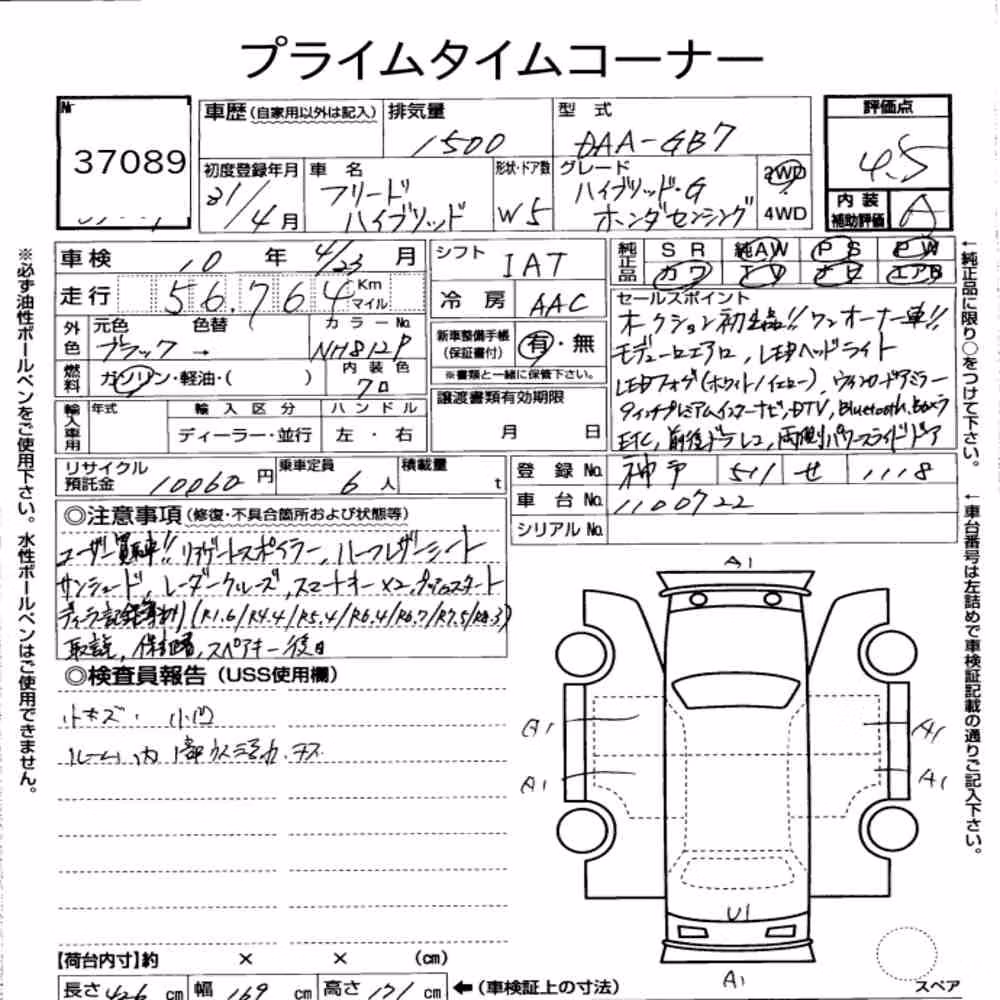 プライムタイムコーナー
№
37089
車歴(自家用以外は記入)
排気量
1500
型式
DAA-GB7
評価点
4.5
内装
補助評価
A
初度登録年月
31/4月
車名
フリード
ハイブリッド
形状・ドア数
W5
グレード
ハイブリッド・G
ホンダセンシング
2WD
4WD
※必ず油性ボールペンをご使用下さい。水性ボールペンはご使用できません。
車検
10年 4/23月
走行
56,764 Km
マイル
外色
元色
色替
カラーNo.
ブラック →
NH812P
燃料
ガソリン・軽油・( )
内装色
クロ
輸入車用
年式
輸入区分
ハンドル
ディーラー・並行
左・右
リサイクル
預託金
10060円
乗車定員
6人
積載量
t
シフト
IAT
冷房
AAC
新車整備手帳
(保証書付)
有・無
※書類と一緒に保管下さい。
譲渡書類有効期限
月 日
純正品
SR
純AW
PS
PW
カワ
TV
ナビ
エアB
セールスポイント
オークション初出品!! ワンオーナー車!!
モデューロエアロ, LEDヘッドライト
LEDフォグ(ホワイト/イエロー), ウインカードアミラー
9インチプレミアムインターナビ, DTV, Bluetooth, Bカメラ
ETC, 前後ドラレコ, 両側パワースライドドア
登録No.
神戸 511 せ 1118
車台No.
1100722
シリアルNo.
←純正品に限り○をつけて下さい。
←車台番号は左詰めで車検証記載の通りご記入下さい。
◎注意事項(修復・不具合箇所および状態等)
ユーザー買取車!! リアゲートスポイラー, ハーフレザーシート
サンシェード, レーダークルーズ, スマートキー×2, プッシュスタート
ディーラー記録簿あり(R1.6/R4.4/R5.4/R6.4/R6.7/R7.5/R8.3)
取説, 保証書, スペアキー後日
◎検査員報告(USS使用欄)
小キズ・小凹
ルーム内 1部ウス汚れ・キズ
A1
A1
A1
A1
A1
U1
A1
【荷台内寸】約 × × (cm)
長さ 426 cm
幅 169 cm
高さ 171 cm
←(車検証上の寸法)
スペア